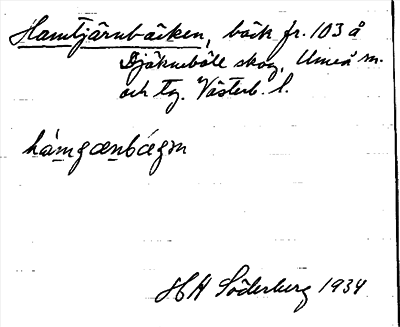 Hamtjärnbäcken, bäck fr. 103 å
Djäkneböle skog, Umeå sn.
och tg. Västerb. l.
håmgænbágən
HA Söderberg 1934